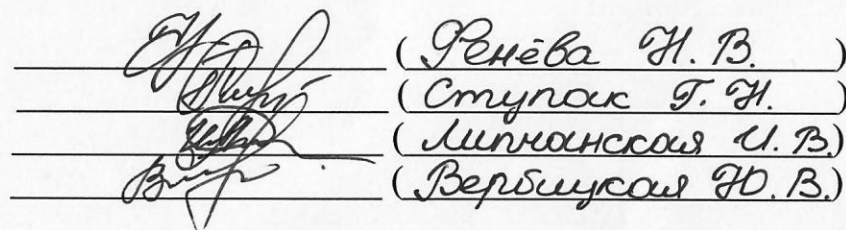 (Фенёва Н. В. )
(Ступак Г. Н. )
(Липчанская И. В.)
(Вербицкая Ю. В.)